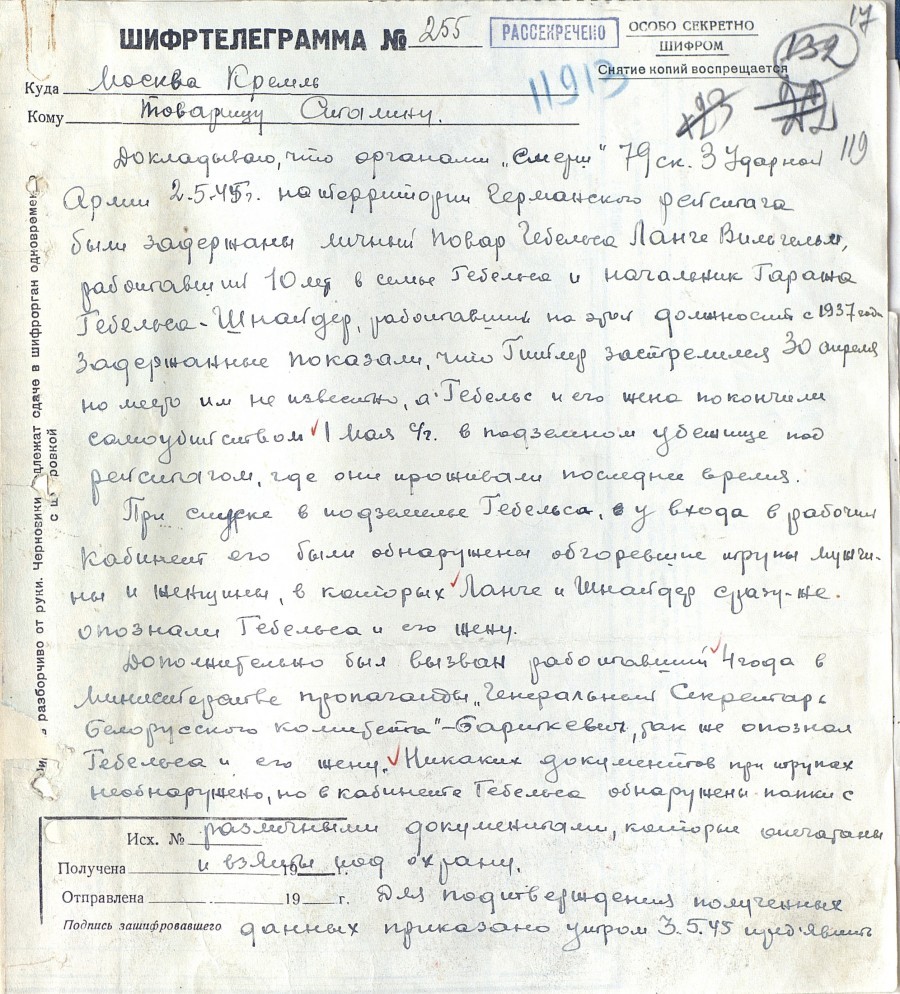 17
ШИФРТЕЛЕГРАММА № 255
РАССЕКРЕЧЕНО
ОСОБО СЕКРЕТНО
ШИФРОМ
132
Снятие копий воспрещается
11913
Куда Москва Кремль
Кому Товарищу Сталину.
119
Докладываю, что органами „Смерш" 79 ск. 3 Ударной
Армии 2.5.45г. на территории Германского рейстага
были задержаны личный повар Гебельса Ланге Вильгельм,
работавший 10 лет в семье Гебельса и начальник Гаража
Гебельса - Шнайдер, работавший на этой должности с 1937 года
Задержанные показали, что Гитлер застрелился 30 апреля
но место им не известно, а Гебельс и его жена покончили
самоубийством 1 мая с/г. в подземном убежище под
рейстагом, где они проживали последнее время.
При спуске в подземелье Гебельса, у входа в рабочий
кабинет его были обнаружены обгоревшие трупы мужчи-
ны и женщины, в которых Ланге и Шнайдер сразу-же
опознали Гебельса и его жену.
Дополнительно был вызван работавший 4 года в
Министерстве пропаганды „Генеральный Секретарь
Белорусского комитета"- так же опознал
Гебельса и его жену. Никаких документов при трупах
необнаружено, но в кабинете Гебельса обнаружены папки с
различными документами, которые опечатаны
и взяты под охрану.
Для подтверждения полученных
данных приказано утром 3.5.45 предъявить
Исх. №
Получена 19 г.
Отправлена 19 г.
Подпись зашифровавшего
разборчиво от руки. Черновики длежат сдаче в шифрорган одновремен
с ш ровкой